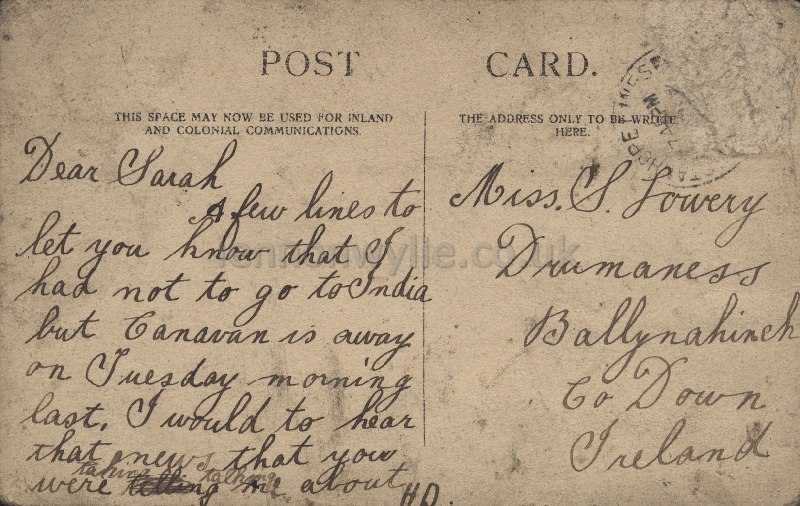 POST CARD.
THIS SPACE MAY NOW BE USED FOR INLAND
AND COLONIAL COMMUNICATIONS.
THE ADDRESS ONLY TO BE WRITTE
HERE.
Dear Sarah
A few lines to
let you know that I
had not to go to India
but Canavan is away
on Tuesday morning
last. I would to hear
that news that you
were telling me about
HD.
Miss. S. Lowery
Drumaness
Ballynahinch
Co Down
Ireland
lennonwylie.co.uk